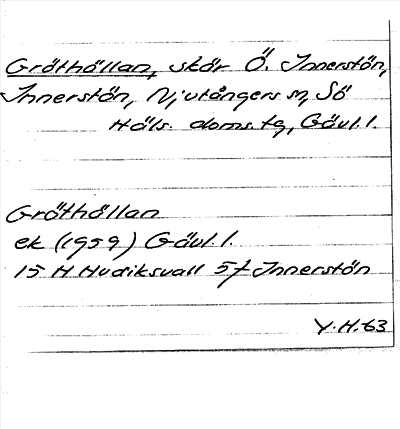 Gråthällan, skär Ö. Innerstön,
Innerstön, Njutångers sn, Sö
Häls. doms.tg, Gävl.l.
Gråthällan
ek (1959) Gävl.l.
15 H Hudiksvall 5f Innerstön
Y.H.-63